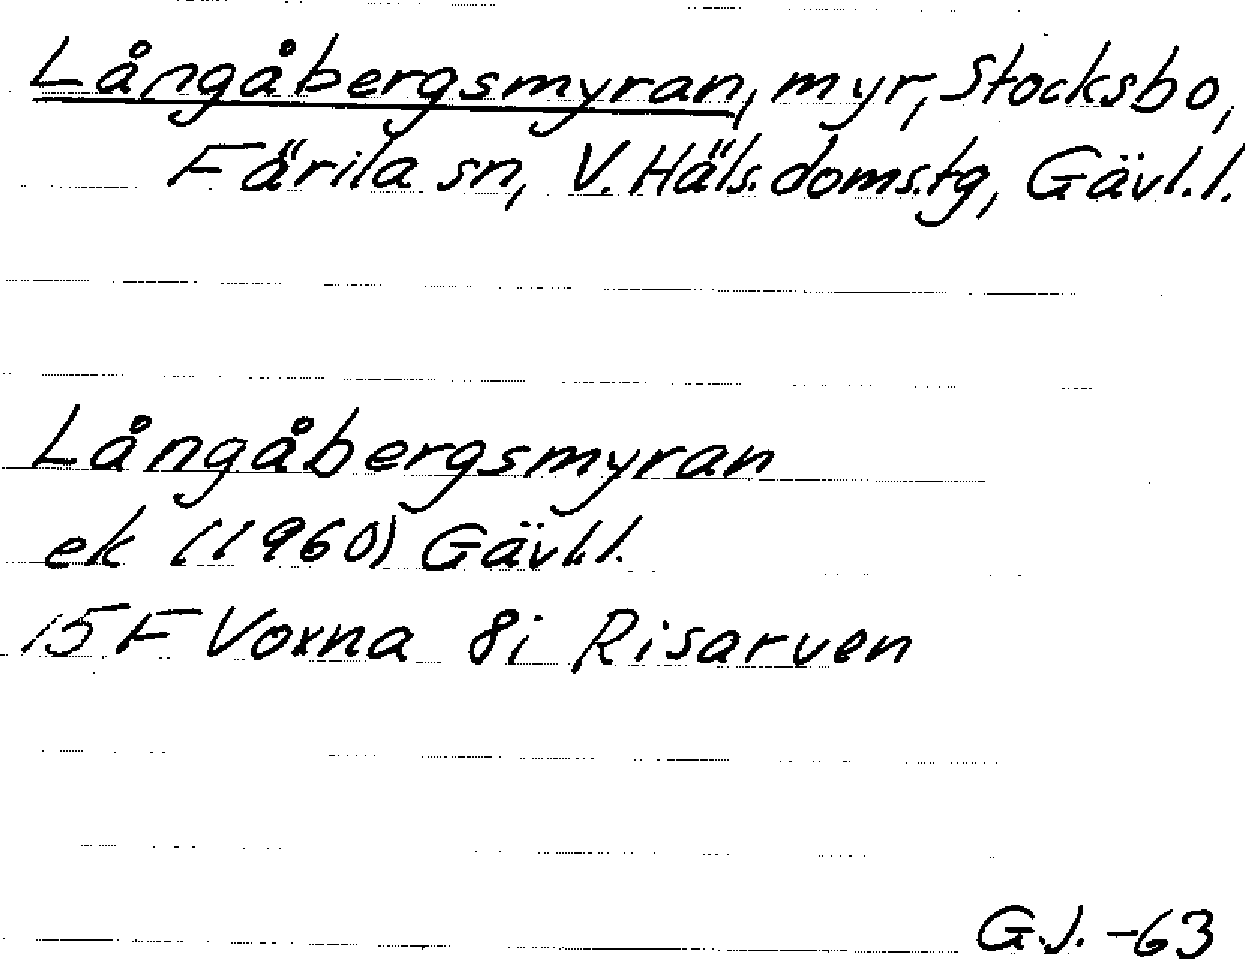 Långåbergsmyran, myr, Stocksbo,
Färila sn, V. Häls. doms.tg, Gävl. l.
Långåbergsmyran
ek (1960) Gävl. l.
15 F Voxna 8i Risarven
G.J. -63